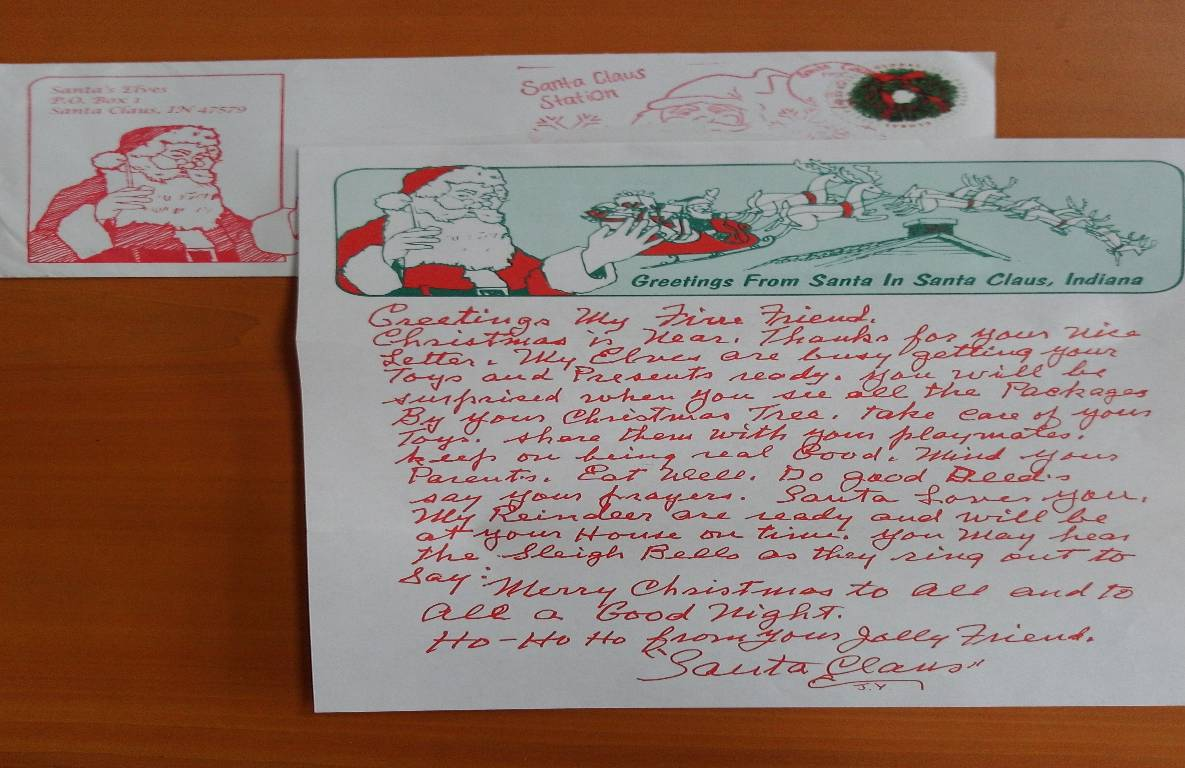 Santa's Elves
P.O. Box 1
Santa Claus, IN 47579
Santa Claus
Station
Greetings From Santa In Santa Claus, Indiana
Greetings My Fine Friend.
Christmas is Near. Thanks for your nice
Letter. My Elves are busy getting your
Toys and Presents ready. You will be
surprised when you see all the Packages
By your Christmas Tree. Take care of your
Toys. share them with your playmates.
keep on being real Good. Mind your
Parents. Eat Well. Do good Deeds
say your prayers. Santa Loves you.
My Reindeer are ready and will be
at your House on time. you May hear
the Sleigh Bells as they ring out to
Say: Merry Christmas to All and to
All a Good Night.
Ho-Ho Ho from your Jolly Friend.
"Santa Claus"
J.Y